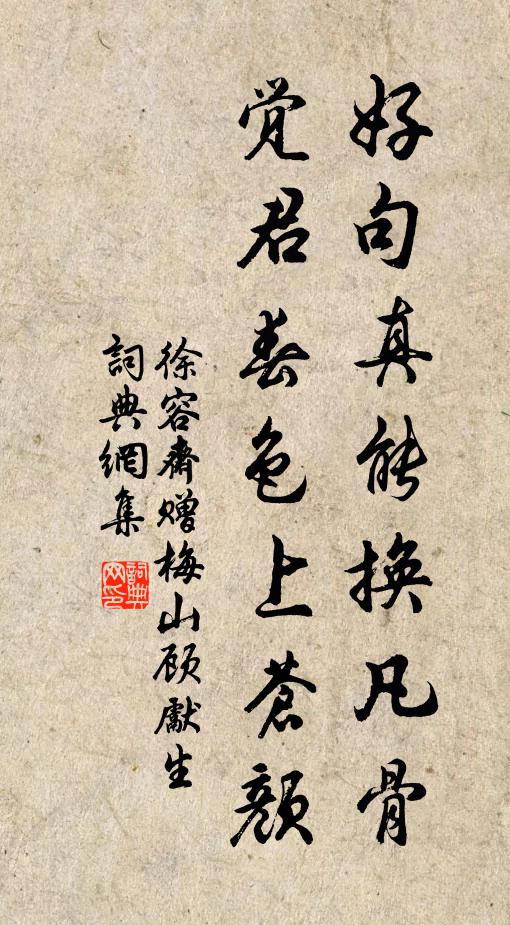 好句真能换凡骨
觉君春色上苍颜
徐容斋赠梅山顾献生
词典网集
词典网印